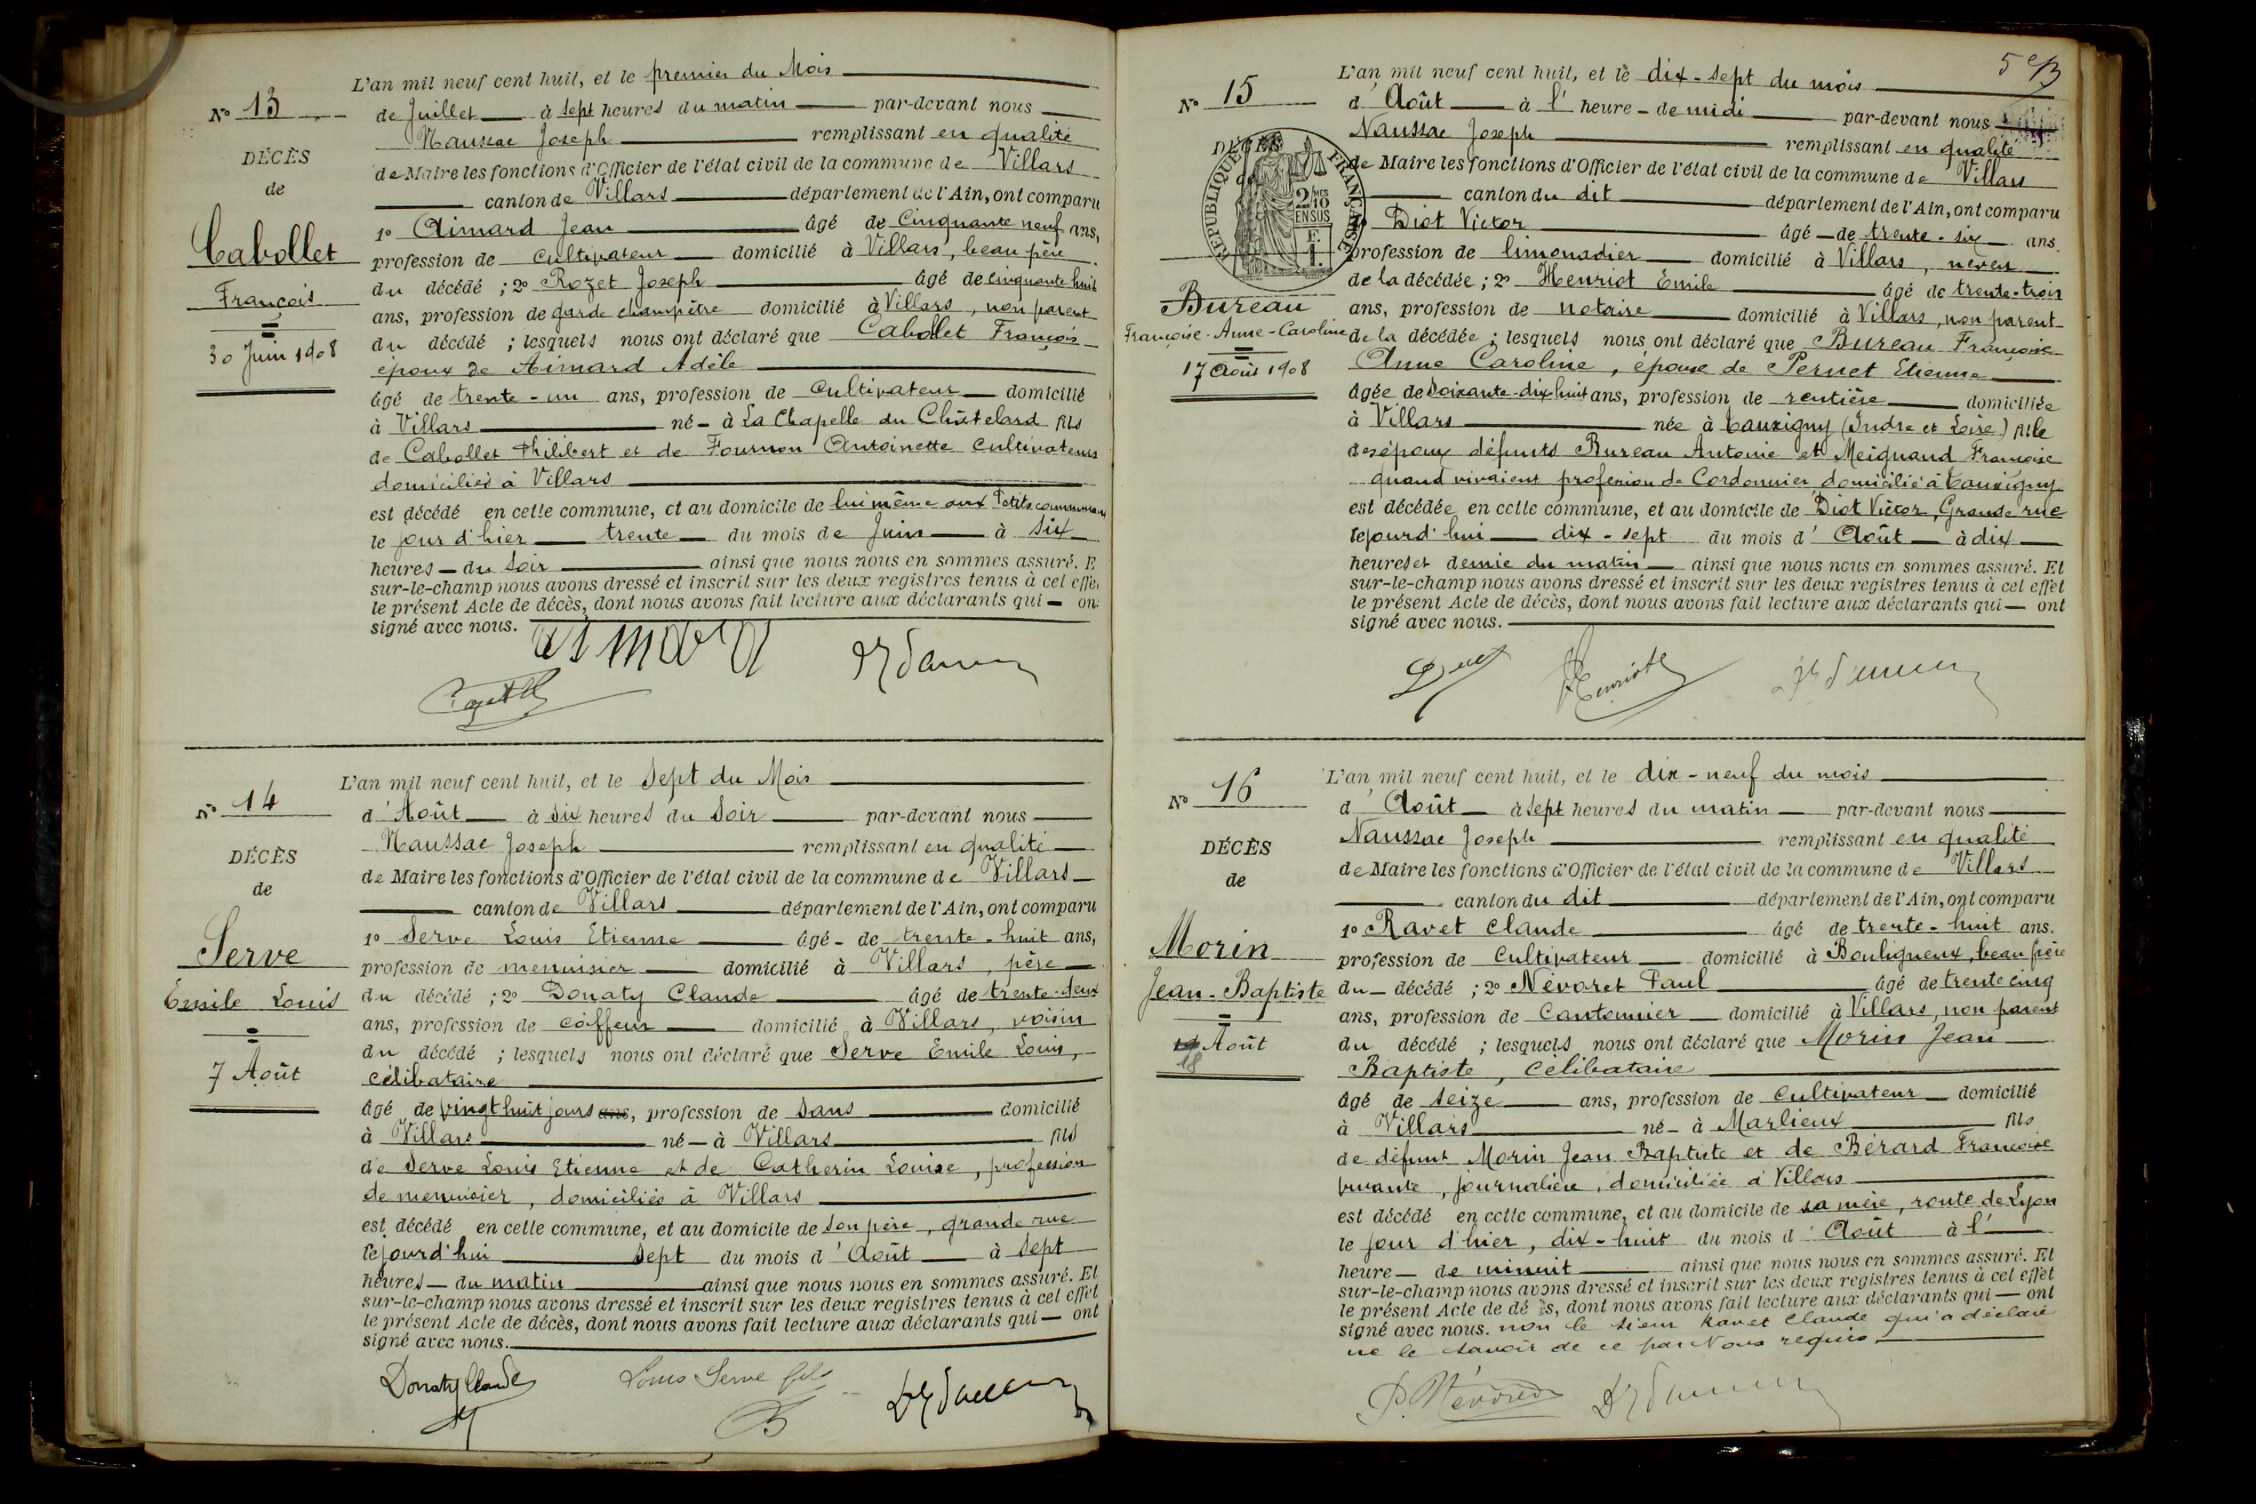 L'an mil neuf cent huit, et le premier du Mois
No 13
de Juillet à sept heures du matin par-devant nous
Naussac Joseph remplissant en qualité
DÉCÈS
de Maire les fonctions d'Officier de l'état civil de la commune de Villars
de
canton de Villars département de l'Ain, ont comparu
Cabollet
1o Aimard Jean âgé de Cinquante neuf ans,
profession de cultivateur domicilié à Villars, beau père
François
du décédé ; 2o Rozet Joseph âgé de cinquante huit
ans, profession de garde champêtre domicilié à Villars, non parent
30 Juin 1908
du décédé ; lesquels nous ont déclaré que Cabollet François
époux de Aimard Adèle
âgé de trente-un ans, profession de cultivateur domicilié
à Villars né - à La Chapelle du Châtelard fils
de Cabollet Philibert et de Fournon Antoinette cultivateurs
domiciliés à Villars
est décédé en cette commune, et au domicile de lui même aux Petits communaux
le jour d'hier trente du mois de Juin à six
heures du soir ainsi que nous nous en sommes assuré. E
sur-le-champ nous avons dressé et inscrit sur les deux registres tenus à cet effet
le présent Acte de décès, dont nous avons fait lecture aux déclarants qui - ont
signé avec nous.
aimard
L'an mil neuf cent huit, et le Sept du Mois
No 14
d'Août à six heures du Soir par-devant nous
Naussac Joseph remplissant en qualité
DÉCÈS
de Maire les fonctions d'Officier de l'état civil de la commune de Villars
de
canton de Villars département de l'Ain, ont comparu
Serve
1o Serve Louis Etienne âgé - de trente-huit ans,
profession de menuisier domicilié à Villars, père
Emile Louis
du décédé ; 2o Donaty Claude âgé de trente-deux
ans, profession de coiffeur domicilié à Villars, voisin
7 Août
du décédé ; lesquels nous ont déclaré que Serve Emile Louis,
célibataire
âgé de vingt huit jours ans, profession de sans domicilié
à Villars né - à Villars fils
de Serve Louis Etienne et de Catherin Louise, profession
de menuisier, domiciliés à Villars
est décédé en cette commune, et au domicile de son père, grande rue
le jourd'hui Sept du mois d'Août à Sept
heures - du matin ainsi que nous nous en sommes assuré. Et
sur-le-champ nous avons dressé et inscrit sur les deux registres tenus à cet effet
le présent Acte de décès, dont nous avons fait lecture aux déclarants qui - ont
signé avec nous.
Donaty Claude Louis Serve fils
5e
L'an mil neuf cent huit, et le dix-sept du mois
No 15
d'Août à l'heure - de midi par-devant nous
Naussac Joseph remplissant en qualité
DÉCÈS
RÉPUBLIQUE FRANÇAISE
2/10 EN SUS
de Maire les fonctions d'Officier de l'état civil de la commune de Villars
de
canton du dit département de l'Ain, ont comparu
Diot Victor âgé - de trente-six ans.
profession de limonadier domicilié à Villars, neveu
de la décédée ; 2o Henriot Emile âgé de trente-trois
Bureau
ans, profession de notaire domicilié à Villars, non parent
Françoise-Anne-Caroline
de la décédée ; lesquels nous ont déclaré que Bureau Françoise
17 Août 1908
Anne Caroline, épouse de Pernet Etienne
âgée de Soixante-dix-huit ans, profession de rentière domiciliée
à Villars née à Tauxigny (Indre et Loire) fille
des époux défunts Bureau Antoine et Meignand Françoise
quand vivaient profession de Cordonnier domicilié à Tauxigny
est décédée en cette commune, et au domicile de Diot Victor, Grande rue
le jourd'hui dix-sept du mois d'Août à dix
heures et demie du matin ainsi que nous nous en sommes assuré. Et
sur-le-champ nous avons dressé et inscrit sur les deux registres tenus à cet effet
le présent Acte de décès, dont nous avons fait lecture aux déclarants qui - ont
signé avec nous.
Henriot
L'an mil neuf cent huit, et le dix-neuf du mois
No 16
d'Août à sept heures du matin par-devant nous
Naussac Joseph remplissant en qualité
DÉCÈS
de Maire les fonctions d'Officier de l'état civil de la commune de Villars
de
canton du dit département de l'Ain, ont comparu
Morin
1o Ravet Claude âgé de trente-huit ans.
profession de cultivateur domicilié à Bouligneux, beau frère
Jean-Baptiste
du - décédé ; 2o Névoret Paul âgé de trente cinq
ans, profession de Cantonnier domicilié à Villars, non parent
18 Août
du décédé ; lesquels nous ont déclaré que Morin Jean
Baptiste, célibataire
âgé de seize ans, profession de cultivateur domicilié
à Villars né - à Marlieux fils
de défunt Morin Jean Baptiste et de Bérard Françoise
vivante, journalière, domiciliée à Villars
est décédé en cette commune, et au domicile de sa mère, route de Lyon
le jour d'hier, dix-huit du mois d'Août à l'
heure - de minuit ainsi que nous nous en sommes assuré. Et
sur-le-champ nous avons dressé et inscrit sur les deux registres tenus à cet effet
le présent Acte de décès, dont nous avons fait lecture aux déclarants qui - ont
signé avec nous. non le sieur Ravet Claude qui a déclaré
ne le savoir de ce par Nous requis
P. Névoret